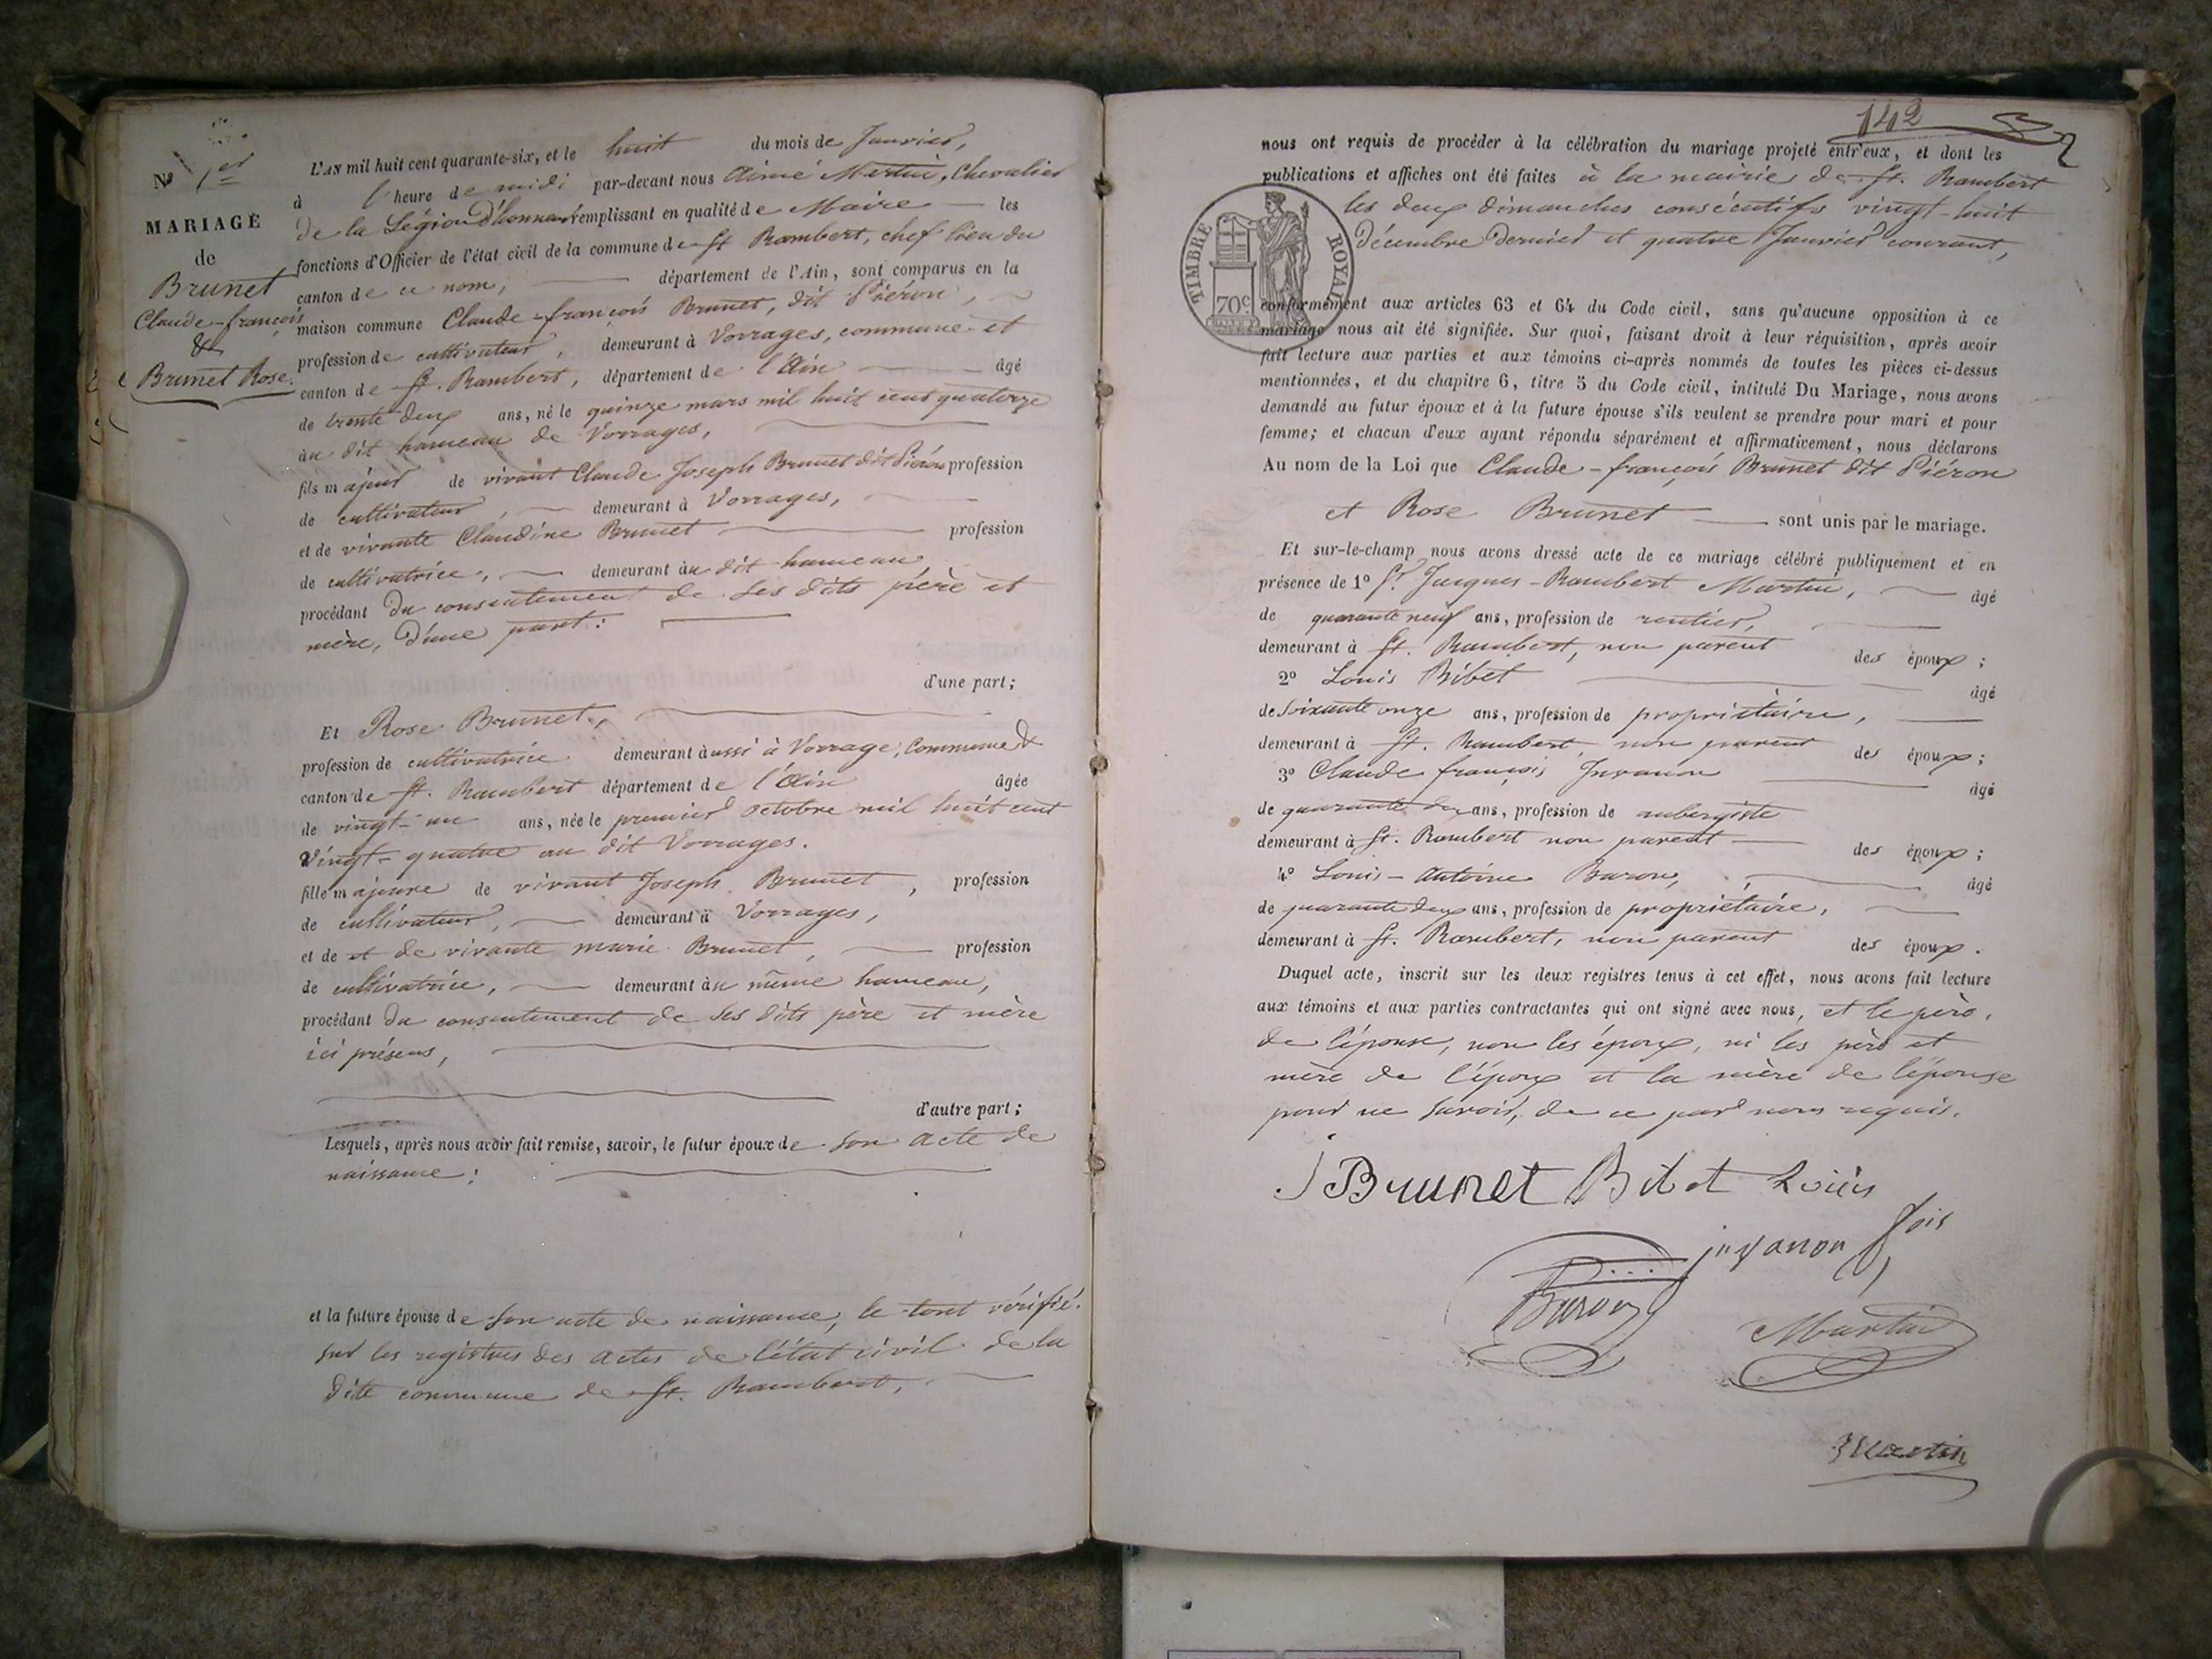 N° 1er
MARIAGE
de
Brunet
Claude-françois
&
Brunet Rose.
L'AN mil huit cent quarante-six, et le huit du mois de Janvier,
à l'heure de midi par-devant nous Aimé Martin, Chevalier
de la Légion d'honneur remplissant en qualité de Maire les
fonctions d'Officier de l'état civil de la commune de St Rambert, chef lieu du
canton de ce nom, département de l'Ain, sont comparus en la
maison commune Claude-françois Brunet, dit Piéron,
profession de cultivateur, demeurant à Vorages, commune et
canton de St. Rambert, département de l'Ain âgé
de trente deux ans, né le quinze mars mil huit cent quatorze
au dit hameau de Vorages,
fils majeur de vivant Claude Joseph Brunet dit Piéron profession
de cultivateur, demeurant à Vorages,
et de vivante Claudine Brunet profession
de cultivatrice, demeurant au dit hameau
procédant du consentement de ses dits père et
mère, d'une part:
d'une part;
Et Rose Brunet,
profession de cultivatrice demeurant aussi à Vorage, Commune &
canton de St. Rambert département de l'Ain âgée
de vingt-un ans, née le premier octobre mil huit cent
vingt-quatre au dit Vorages.
fille majeure de vivant Joseph Brunet, profession
de cultivateur, demeurant à Vorages,
et de et de vivante marie Brunet, profession
de cultivatrice, demeurant au même hameau,
procédant du consentement de ses dits père et mère
ici présens,
d'autre part;
Lesquels, après nous avoir fait remise, savoir, le futur époux de son acte de
naissance;
et la future épouse de son acte de naissance, le tout vérifié.
sur les registres des actes de l'état civil de la
dite commune de St. Rambert,
142
nous ont requis de procéder à la célébration du mariage projeté entr'eux, et dont les
publications et affiches ont été faites à la mairie de St. Rambert
les deux dimanches consécutifs vingt-huit
décembre dernier et quatre Janvier courant,
TIMBRE ROYAL
70c
conformément aux articles 63 et 64 du Code civil, sans qu'aucune opposition à ce
mariage nous ait été signifiée. Sur quoi, faisant droit à leur réquisition, après avoir
fait lecture aux parties et aux témoins ci-après nommés de toutes les pièces ci-dessus
mentionnées, et du chapitre 6, titre 5 du Code civil, intitulé Du Mariage, nous avons
demandé au futur époux et à la future épouse s'ils veulent se prendre pour mari et pour
femme; et chacun d'eux ayant répondu séparément et affirmativement, nous déclarons
Au nom de la Loi que Claude-françois Brunet dit Piéron
et Rose Brunet sont unis par le mariage.
Et sur-le-champ nous avons dressé acte de ce mariage célébré publiquement et en
présence de 1° Sr. Jacques-Rambert Martin, âgé
de quarante neuf ans, profession de rentier,
demeurant à St. Rambert, non parent des époux;
2° Louis Bibet âgé
de soixante onze ans, profession de propriétaire,
demeurant à St. Rambert non parent des époux;
3° Claude françois Juvanon âgé
de quarante deux ans, profession de aubergiste
demeurant à St. Rambert non parent des époux;
4° Louis-Antoine Baron, âgé
de quarante deux ans, profession de propriétaire,
demeurant à St. Rambert, non parent des époux.
Duquel acte, inscrit sur les deux registres tenus à cet effet, nous avons fait lecture
aux témoins et aux parties contractantes qui ont signé avec nous, et le père,
de l'épouse, non les époux, ni les père et
mère de l'époux et la mère de l'épouse
pour ne savoir, de ce par nous requis.
J Brunet Bibet Louis
juvanon fois
Baron
Martin
Martin